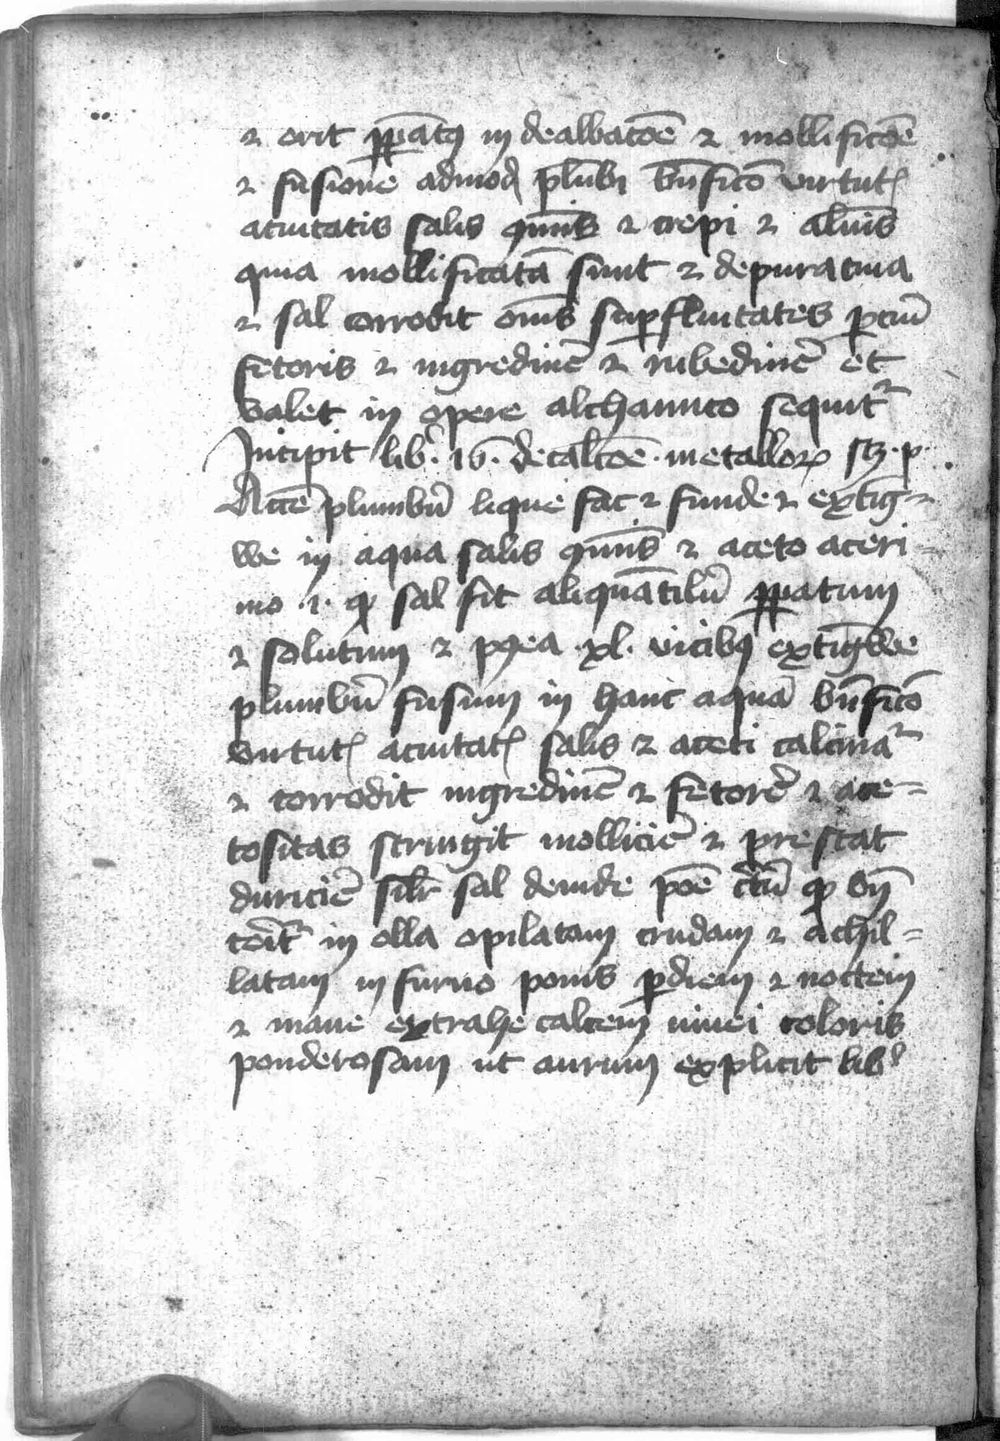 ⁊ erit ꝑꝑat⁹ in dealbatōe ⁊ mollificōe
⁊ fusione admod̄ plūbi bn̄ficō virtut̄
acuitatis salis ⁊ ⁊ alūis
quia mollificatā sunt ⁊ depuratiua
⁊ sal corrodit om̄s suꝑfluitates
fetoris ⁊ nigredinē ⁊ rubedinē et
valet in opere alchamico sequit᷑
Incipit lib᷑ .16. de calcōe metalloꝝ
Accē plumbū lique fac ⁊ funde ⁊ extīg=
we in aqua salis ⁊ aceto aceri=
mo .i. ꝙ sal sit aliquātilū ꝑꝑatum
⁊ solutum ⁊ p⁹ea .xl. vicib⁹ extīgwe
plumbū fusum in hanc aquā bn̄ficō
virtut̄ acuitat̄ salis ⁊ aceti calcinat᷑
⁊ corrodit nigredinē ⁊ fetorē ⁊ ace=
tositas stringit molliciē ⁊ prestat
duriciē silr̄ sal deinde pōe ꝙ
in olla opilatam crudam ⁊ achil=
latam in furno ponis ꝑ diem ⁊ noctem
⁊ mane extrahe calcem niuei coloris
ponderosam ut aurum explicit lib᷑